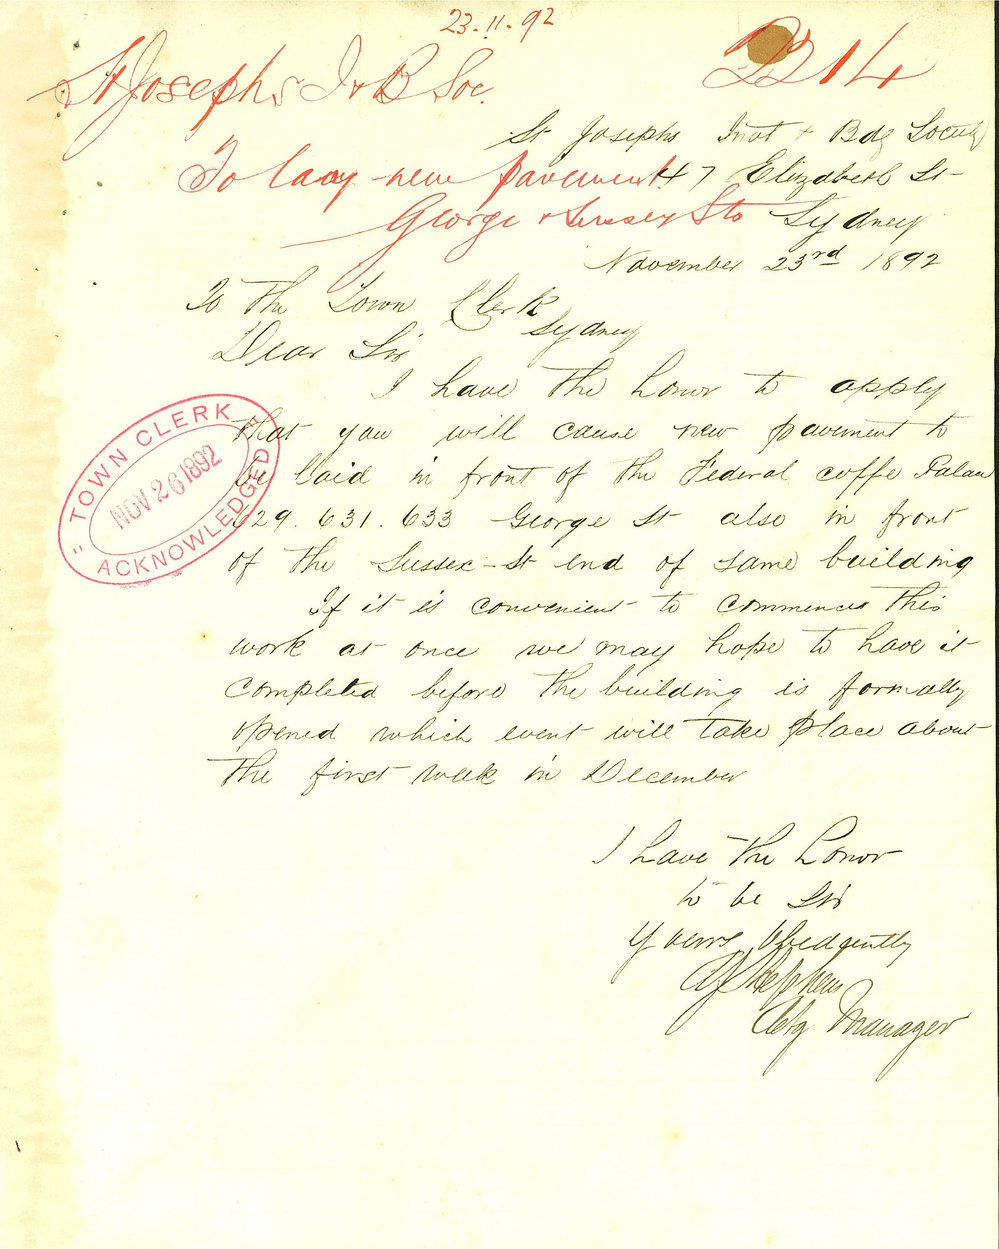 23.11.92
St Josephs I & B Soc.
2214
St Josephs Invt & Bdg Society
To lay new pavement
47 Elizabeth St
George & Sussex Sts
Sydney
November 23rd 1892
To The Town Clerk
Sydney
Dear Sir
I have the honor to apply
that you will cause new pavement to
be laid in front of the Federal coffe Palace
629. 631. 633 George St also in front
of the Sussex St end of same building
If it is convenient to commence this
work at once we may hope to have it
completed before the building is formally
opened which event will take place about
the first week in December
I have the honor
to be Sir
Yours Obediently
Stephens
Actg Manager
TOWN CLERK
NOV 26 1892
ACKNOWLEDGED